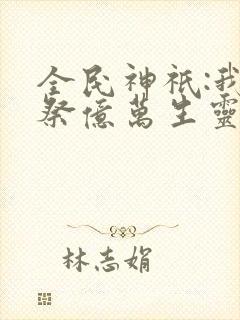 全民神祇:我
祭億萬生靈
林志娟